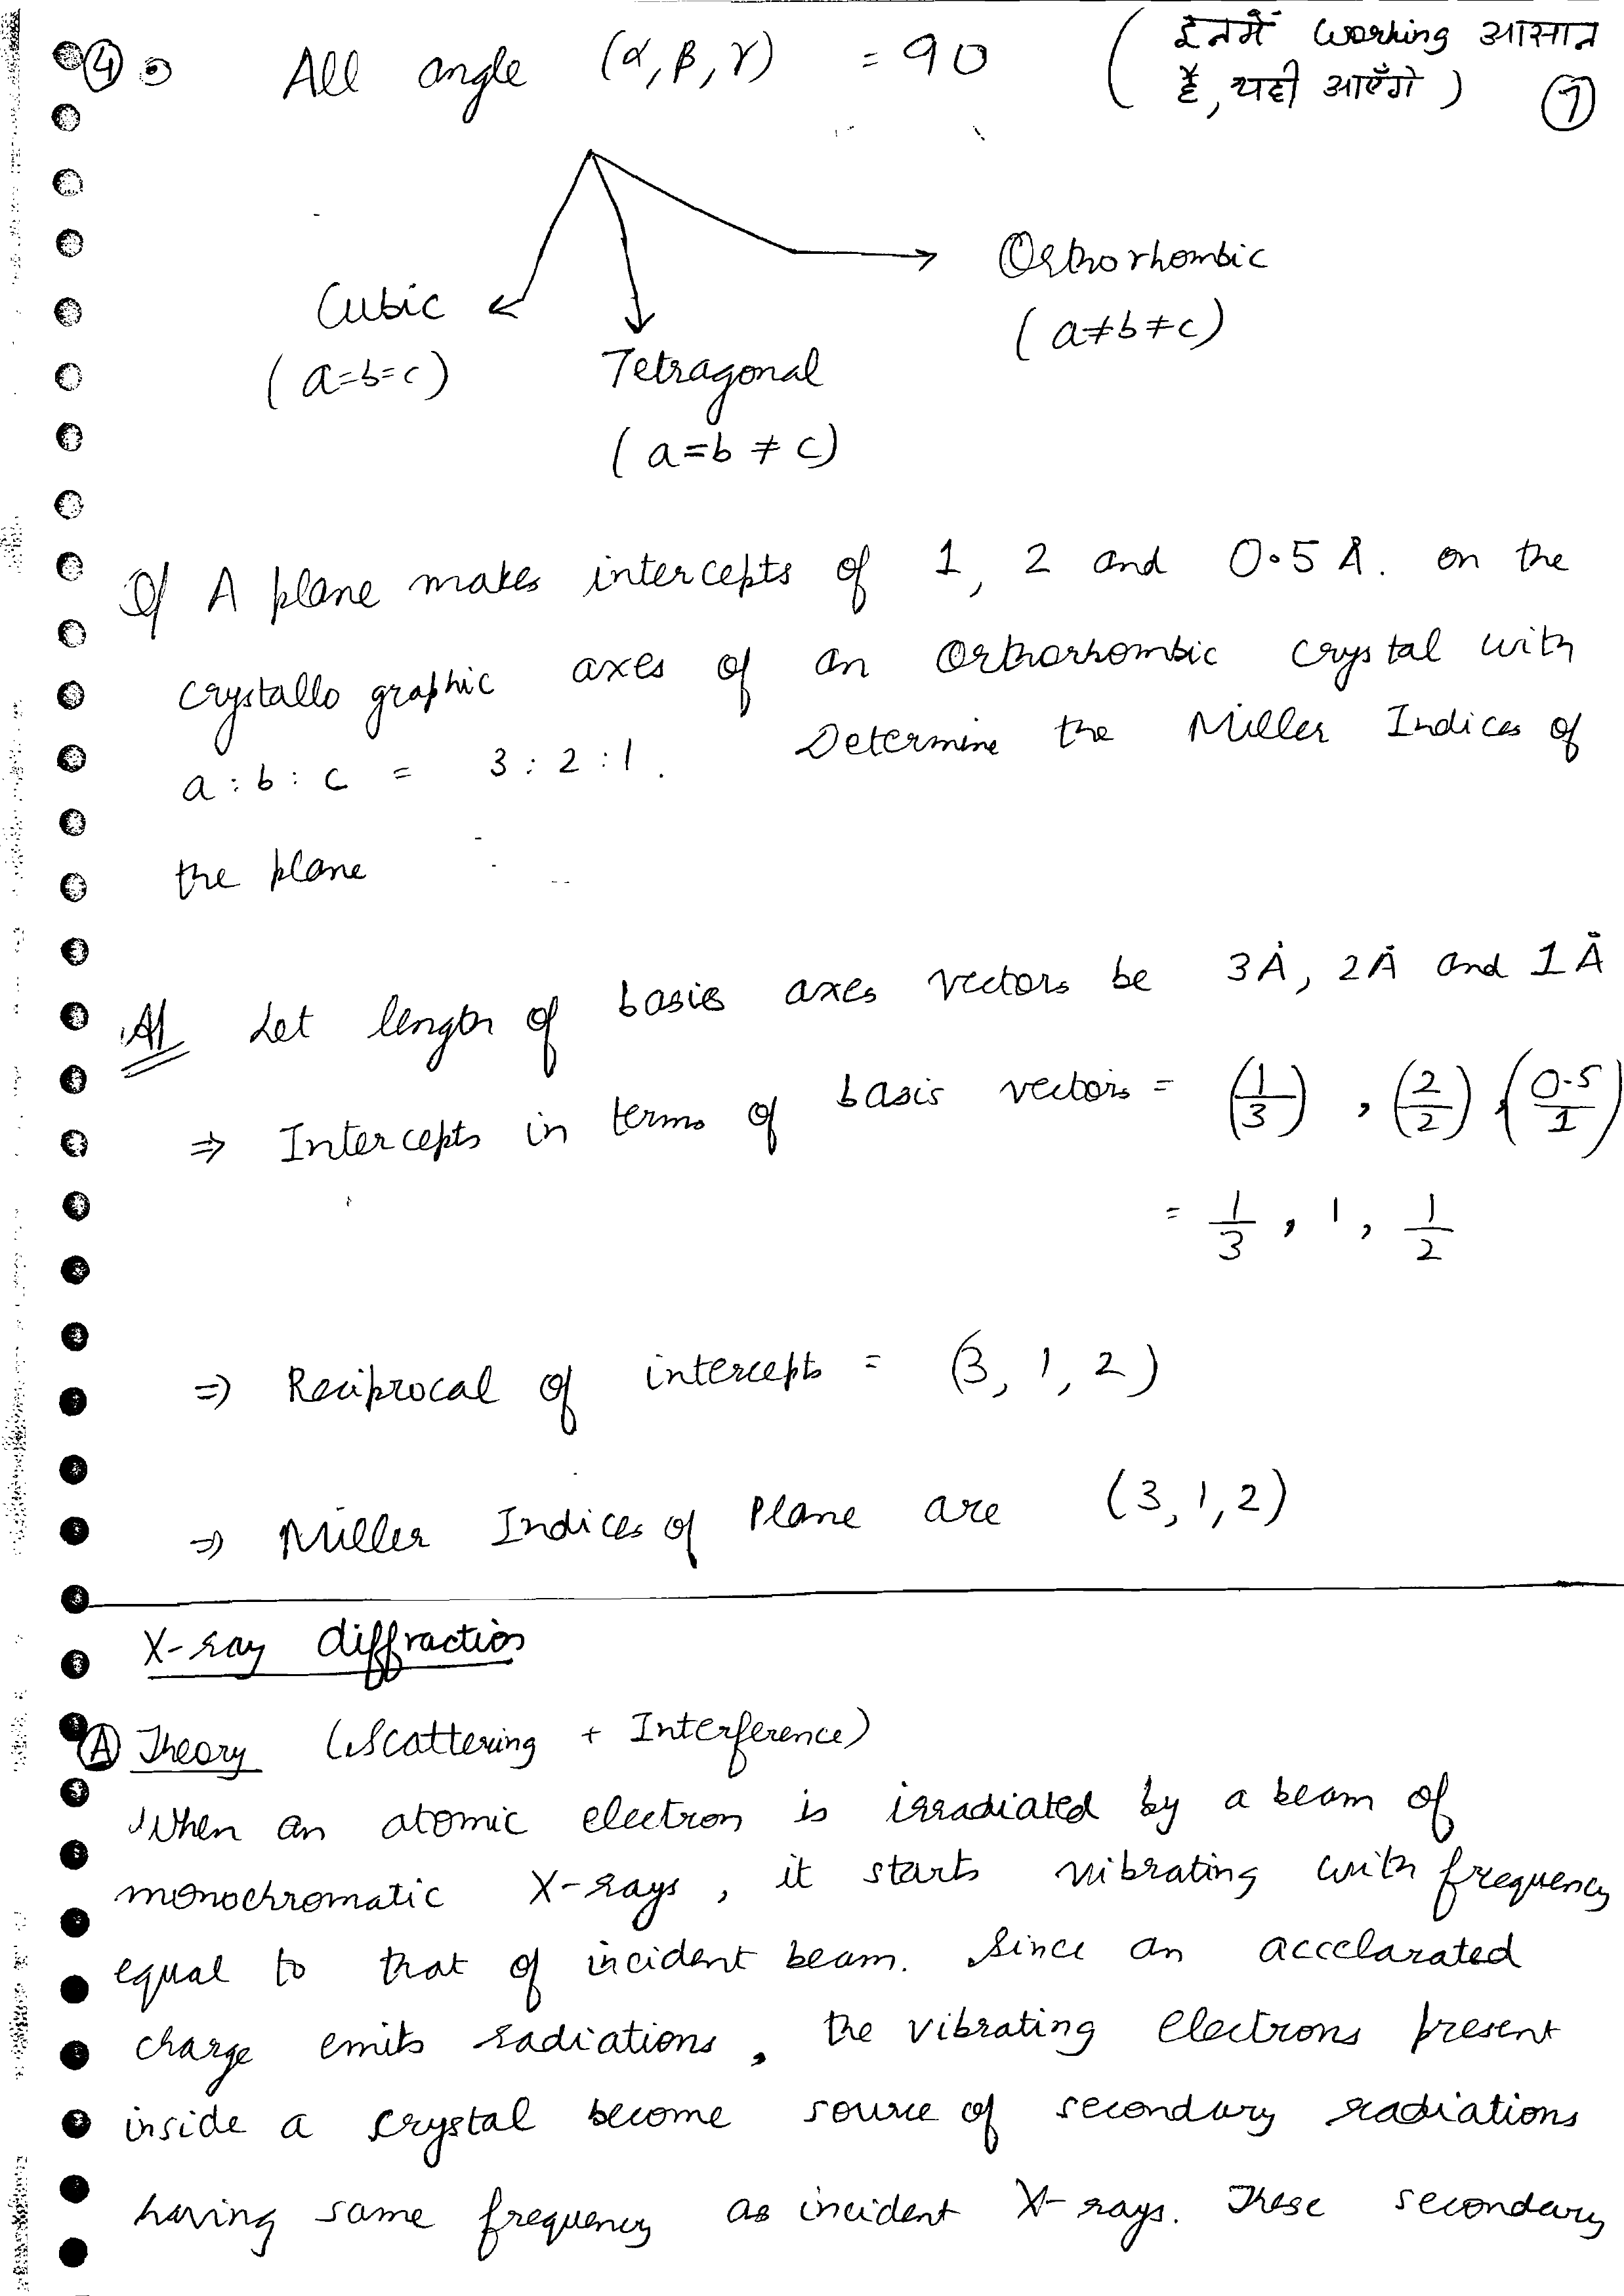 ④ All angle (α, β, γ) = 90 ( इनमें working आसान
है, यही आएँगे ) ⑦
Orthorhombic
Cubic
(a≠b≠c)
(a=b=c)
Tetragonal
(a=b≠c)
Q/ A plane makes intercepts of 1, 2 and 0.5 Å. on the
crystallo graphic axes of an Orthorhombic crystal with
a : b : c = 3 : 2 : 1. Determine the Miller Indices of
the plane
A/ Let length of basis axes vectors be 3Å, 2Å and 1Å
⇒ Intercepts in terms of basis vectors = (1/3), (2/2), (0.5/1)
= 1/3, 1, 1/2
⇒ Reciprocal of intercepts = (3, 1, 2)
⇒ Miller Indices of Plane are (3,1,2)
X-ray diffraction
Ⓐ Theory (Scattering + Interference)
When an atomic electron is irradiated by a beam of
monochromatic X-rays, it starts vibrating with frequency
equal to that of incident beam. Since an accelarated
charge emits radiations, the vibrating electrons present
inside a crystal become source of secondary radiations
having same frequency as incident X-rays. These secondary